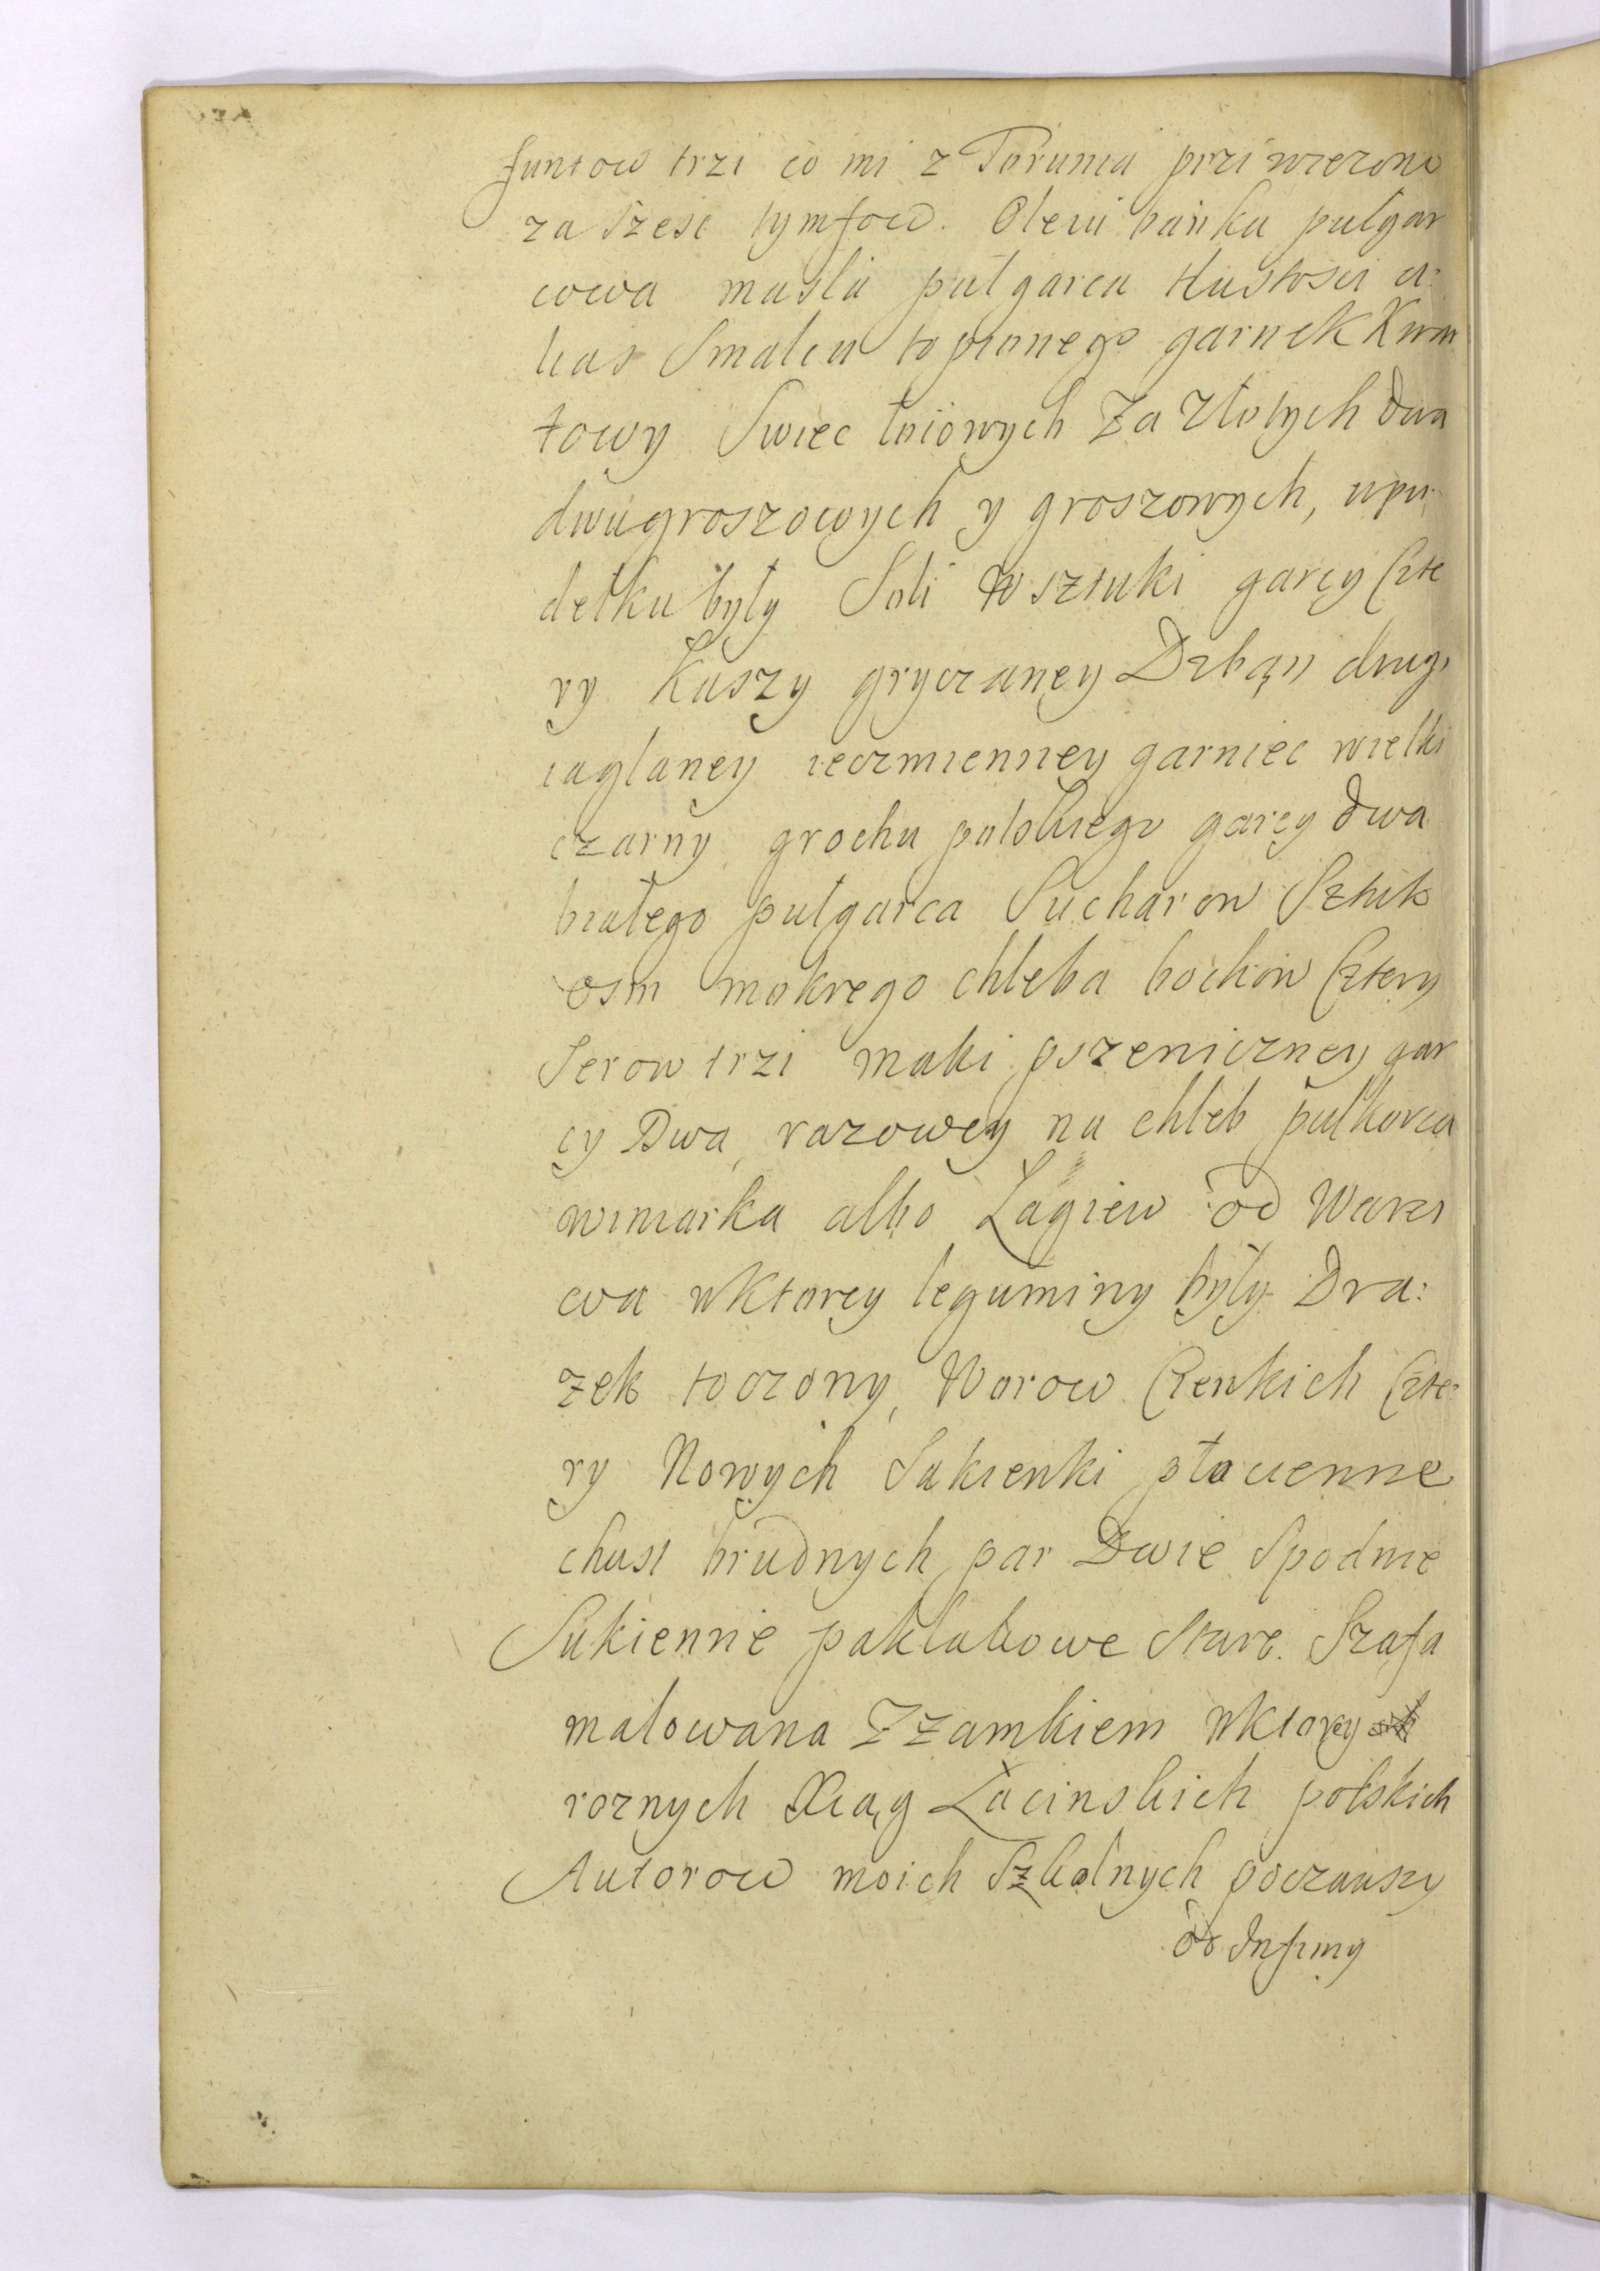 funtow trzi co mi z Torunia prziwiezono
za sześć tymfow. Oleiu bańka pułgar
cowa masła puł garca tłustości a:
lias Smalcu topionego garnek Kwar
towy Swiec łoiowych Za Złotych dwa
dwugroszowych y groszowych, wpu
dełku były Soli W sztuki garcy Czte
ry Kaszy gryczaney Dzban drugi
iaglaney ieczmienney garniec wielki
czarny grochu polskiego garcy dwa
białego pułgarca Sucharow Sztuk
osm mokrego chleba bochow Cztery
Serow trzi maki pszeniczney gar
cy Dwa, razowey na chleb pułkorca
winiarka albo Łagiew od Warzi
wa wktorey leguminy były Dra:
zek toczony, Worow Cienkich Czte:
ry Nowych Sukienki płocienne
chust brudnych par Dwie Spodnie
Sukiennie paklakowe Stare. Szafa
malowana Zzamkiem wktorey
roznych Xiąg Łacinskich polskich
Autorow moich Szkolnych poczawszy
od Infimy